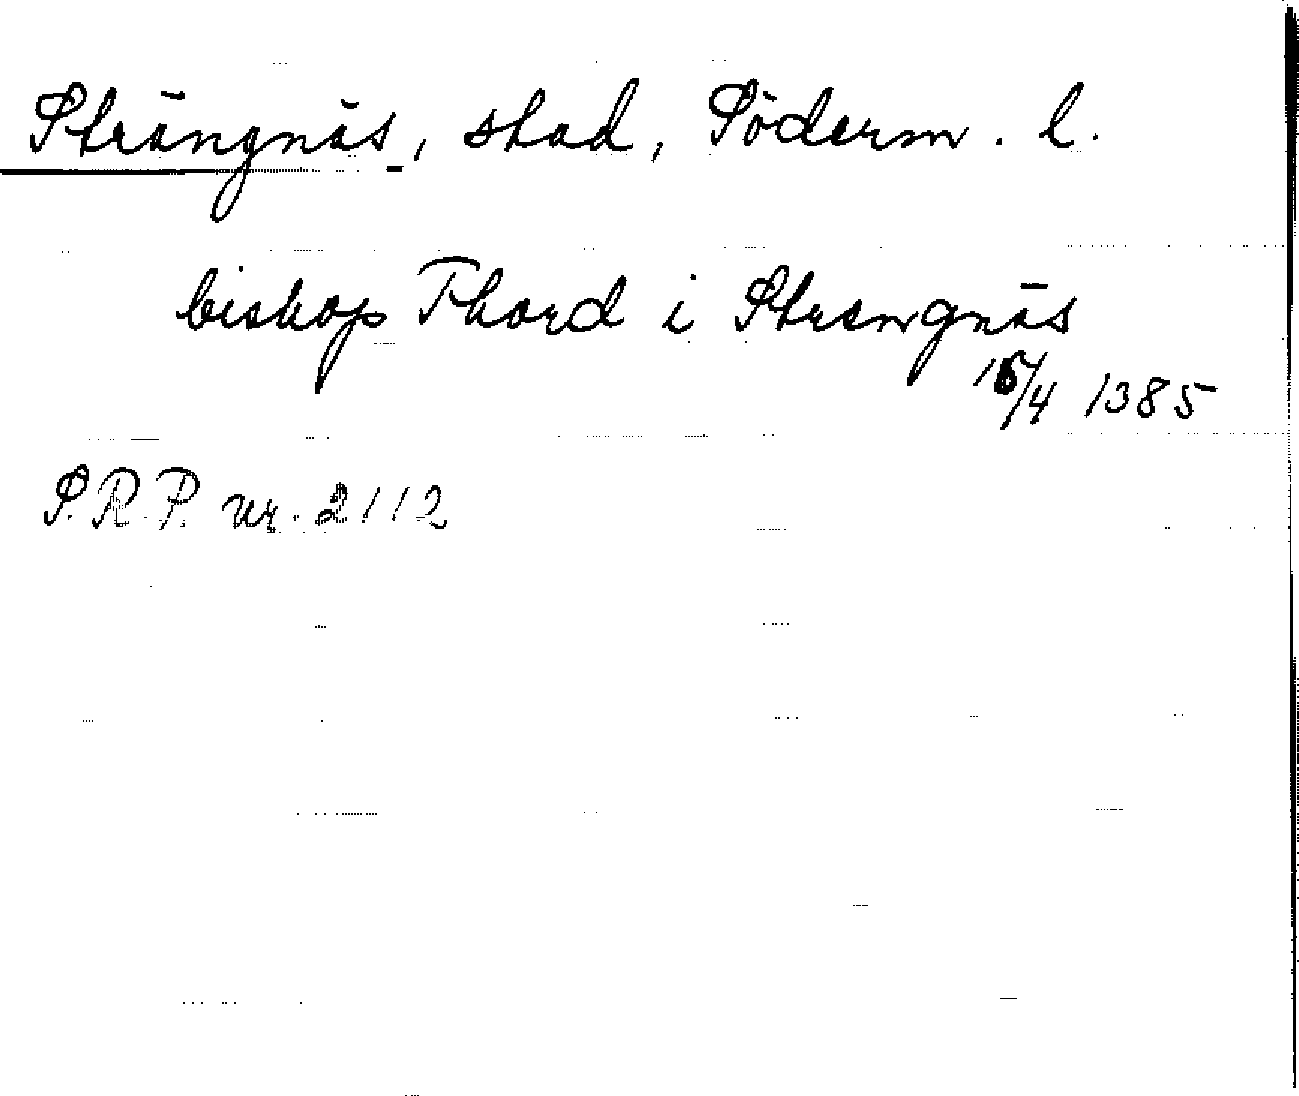 Strängnäs, stad, Söderm. l.
biskop Thord i Strengnäs
15/4 1385
S.R.P. nr. 2112